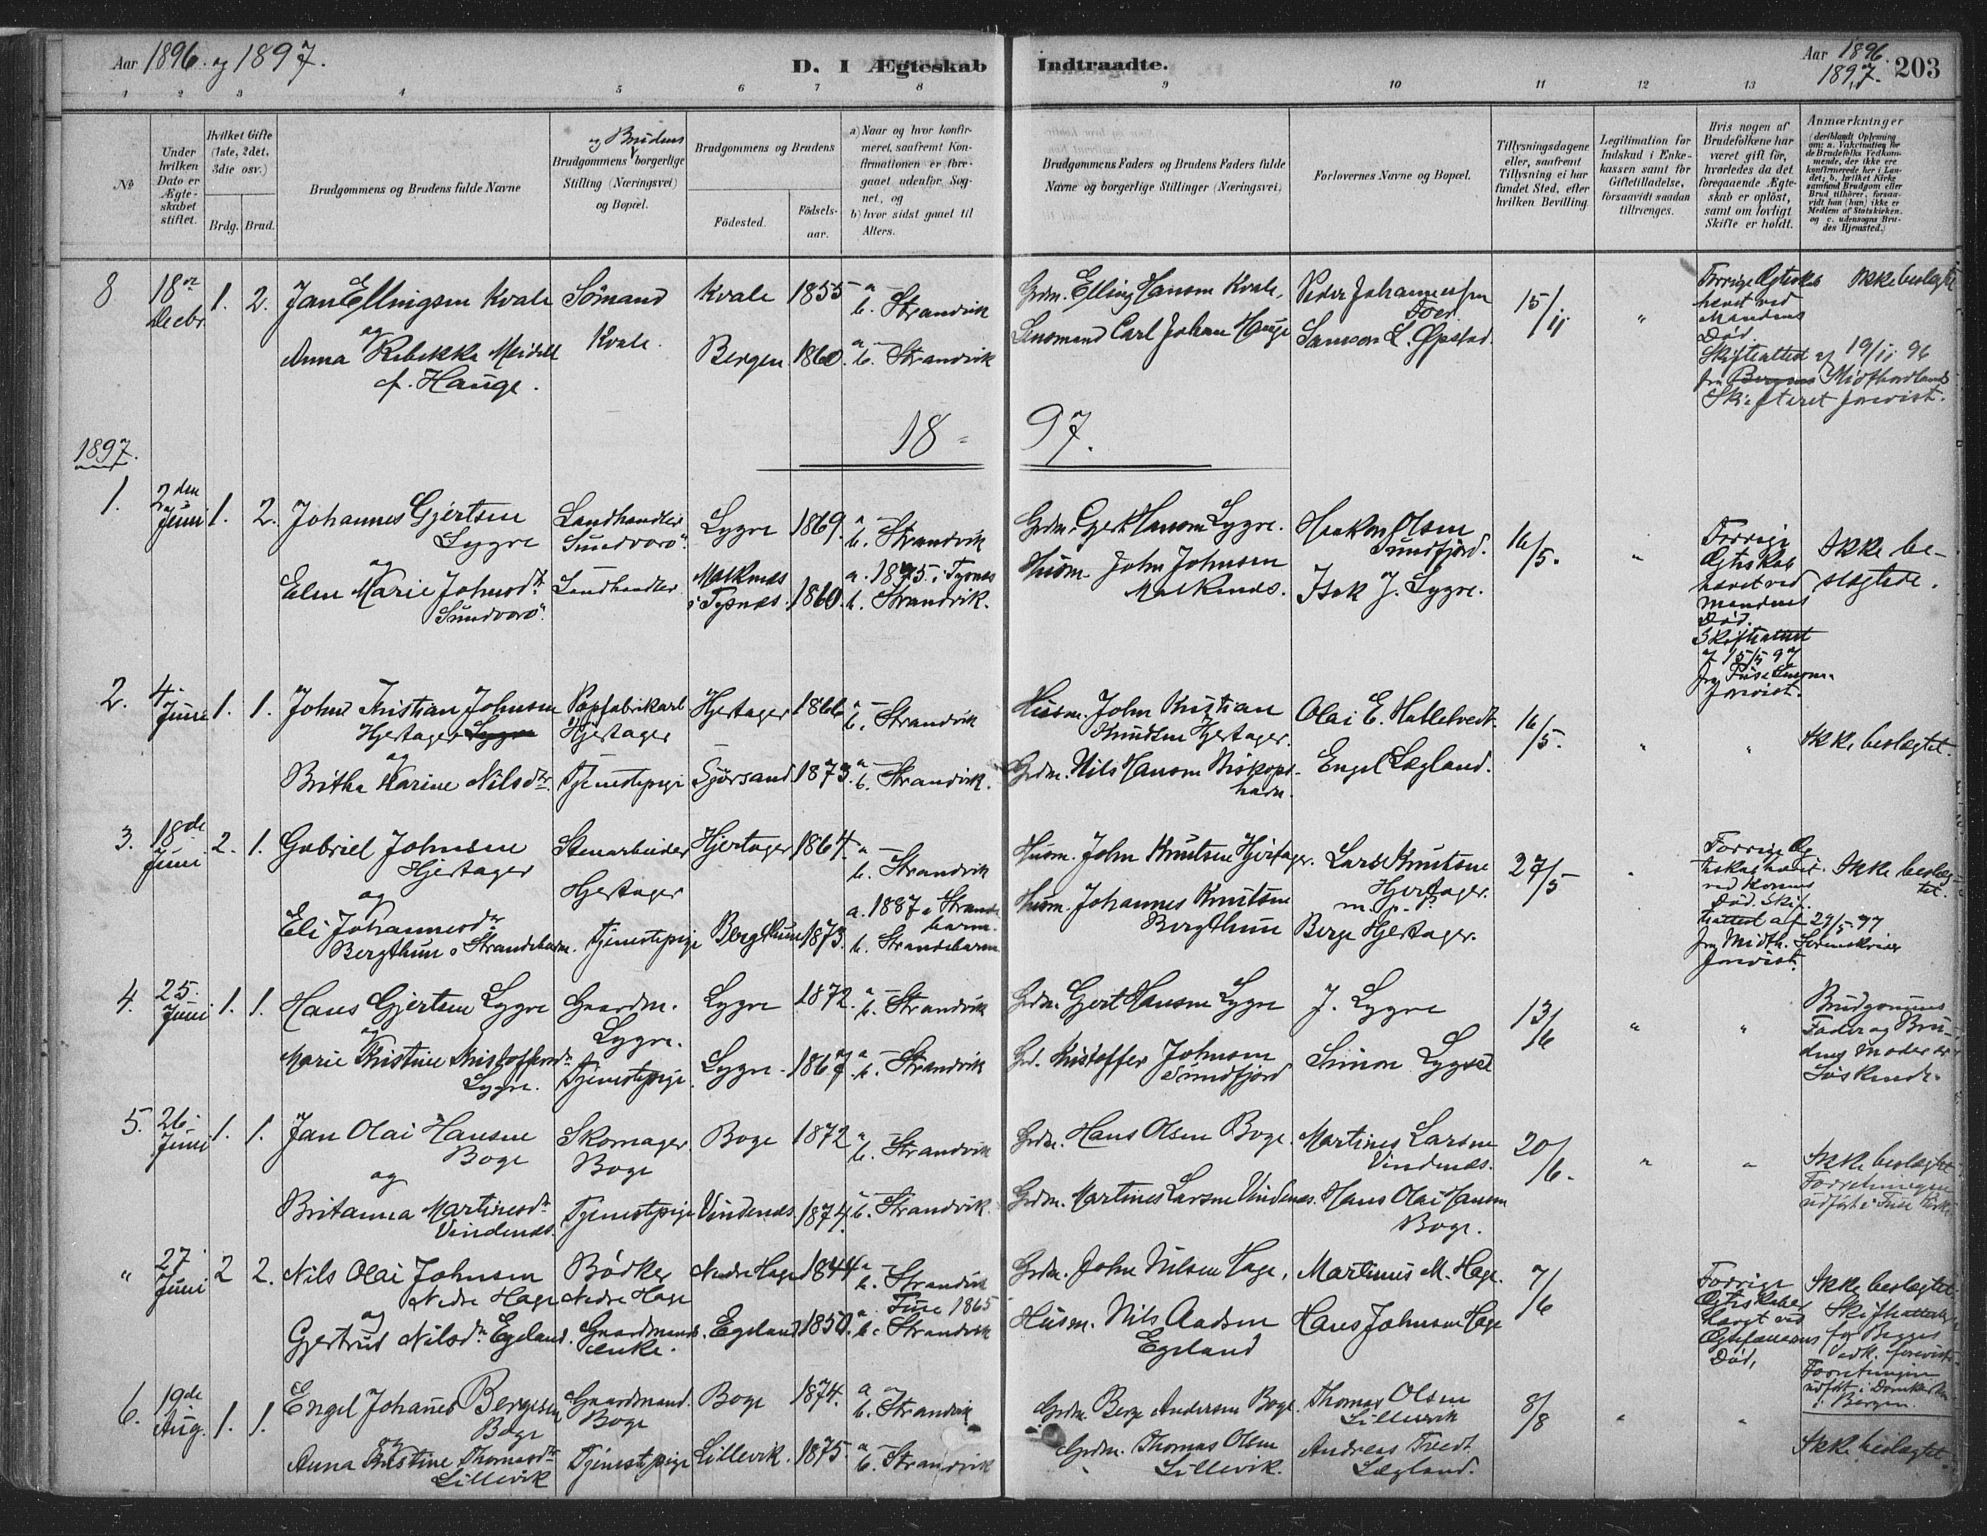 Aar 1896 og 1897.
D. I Ægteskab Indtraadte.
Aar 1896. 1897. 203
1 2 3 4 5 6 7 8 9 10 11 12 13
No
Under hvilken Dato er Ægteskabet stiftet.
Hvilket Gifte (1ste, 2det, 3die osv.)
Brdg. Brud.
Brudgommens og Brudens fulde Navne
og Brudens
Brudgommens borgerlige Stilling (Næringsvei) og Bopæl.
Brudgommens og Brudens
Fødested. Fødselsaar.
a) Naar og hvor konfirmeret, saafremt Konfirmationen er foregaaet udenfor Sognet, og
b) hvor sidst gaaet til Alters.
Brudgommens Faders og Brudens Faders fulde Navne og borgerlige Stillinger (Næringsvei)
Forlovernes Navne og Bopæl.
Tillysningsdagene eller, saafremt Tillysning ei har fundet Sted, efter hvilken Bevilling.
Legitimation for Indskud i Enkekassen samt for Giftetilladelse, forsaavidt saadan tiltrænges.
Hvis nogen af Brudefolkene har været gift før, hvorledes da det foregaaende Ægteskab er opløst, samt om lovligt Skifte er holdt.
Anmærkninger
(deriblandt Oplysning om: a. Vakcination for de Brudefolks Vedkommende, der ikke ere konfirmerede her i Landet; b. hvilket Kirkesamfund Brudgom eller Brud tilhører, forsaavidt han (hun) ikke er Medlem af Statskirken, og c. udensogns Brudes Hjemsted.)
8 18de Decbr. 1. 2. Jan Ellingsen Kvale Sömand Kvale 1855 a — b. Strandvik Grdm. Elling Hansen Kvale, Peder Johannessen 15/11 " Forrige Ægteskab hævet ved Mandens Død. Ikke beslægte
og
Anna Rebekka Meidell f. Hauge. Kvale. Bergen 1860. a — b. Strandvik Carl Johan Hauge Samson L. Øpstad.
Skifteattest af 19/11 96 fra Midthordlands Skifteret forevist.
18 - 97.
1897.
1. 2den Juni 1. 2. Johannes Gjertsen Lygre Landhandler Sundvorö. Lygre 1869. a — b. Strandvik Grdm. Gjert Hansen Lygre. Haakon Olsen Sundfjord. 16/5. " Forrige Ægteskab hævet ved Mandens Død. Ikke beslægtede.
og
Elen Marie Johnsdtr. Sundvorö. Landhandler Malkenes i Tysnes. 1860. a. 1875 i Tysnes b. Strandvik. Husm. John Johnsen Malkenes. Isak J. Lygre.
Skifteattest af 15/5 97 fra Fuse forevist.
2. 4. Juni 1. 1. Johns Kristian Johnsen Hjertager Papfabrikarb Hjertager Hjertager 1866 a — b. Strandvik Husm. John Kristian Knudsen Hjertager. Olai E. Hatletvedt. 16/5. " " Ikke beslægtet.
og
Britha Karine Nilsdtr. Tjenestepige Sjörsand 1873. a — b. Strandvik. Grdm. Nils Hansen Biskopshavn. Engel Lægland.
3. 18de Juni 2. 1. Gabriel Johnsen Hjertager Stenarbeider Hjertager Hjertager 1864. a — b. Strandvik Husm. John Knutsen Hjertager. Lars Knutsen Hjertager. m. p. P. 27/5 " Ikke beslægtet.
og
Eli Johannesdtr. Bergthun, Strandebarm. Tjenestepige Bergthun 1873. a. 1887 i Strandebarm. b. Strandebarm Husm. Johannes Knutsen Bergthun Berge Hjertager.
Forrige Ægteskab hævet ved Konens Død. Skifteattest af 29/5 97 fra Midth. Sorenskriver forevist.
4. 25. Juni 1. 1. Hans Gjertsen Lygre Gaardm. Lygre. Lygre 1872. a — b. Strandvik Grdm. Gjert Hansen Lygre J. Lygre 13/6 " " Brudgommens Fader og Brudens Moder er Söskende.
og
Marie Kristine Kristoffersdtr. Lygre. Tjenestepige. Lygre. 1867 a — b. Strandvik Grd. Kristoffer Johnsen Sundfjord Simon Lygre
5. 26. Juni 1. 1. Jan Olai Hansen Boge Skomager Boge Boge 1872 a — b. Strandvik Grdm. Hans Olsen Boge. Martines Larsen Vindenes. 20/6. " " Ikke beslægtet. Forretningen udført i Fuse Kirke
og
Britanna Martinesdtr. Vindenes. Tjenestepige Vindenes. 1874. a — b. Strandvik. Grdm. Martines Larsen Vindenes. Hans Olai Hansen Boge.
" 27 Juni 2 2. Nils Olai Johnsen Nedre Hage Bödker Nedre Hage Nedre Hage 1844 a — b. Strandvik Grdm. John Nilsen Hage, Martinus M. Hage. 7/6 Forrige Ægteskaber hævet ved Ægtefællens Død, Ikke beslægtet. Skifteattester for Begges Vedk. forevist. Forretningen udført i Domkirken i Bergen.
og
Gjertrud Nilsdtr. Egeland. Gaardmands enke. Egeland 1850. a. Fuse 1865 b. Strandvik Husm. Nils Aadsen Egeland Hans Johnsen Hage
6. 19de Aug. 1. 1. Engel Johannes Bergesen Boge Gaardmand. Boge Boge 1874. a — b. Strandvik Grdm. Berge Andersen Boge Thomas Olsen Lillevik 8/8 " " Ikke beslægtet.
og
Anna Kristine Thomasdtr. Lillevik Tjenestepige Lillevik. 1875. a — b. Strandvik Grdm. Thomas Olsen Lillevik. Andreas Tvedt Lægland.